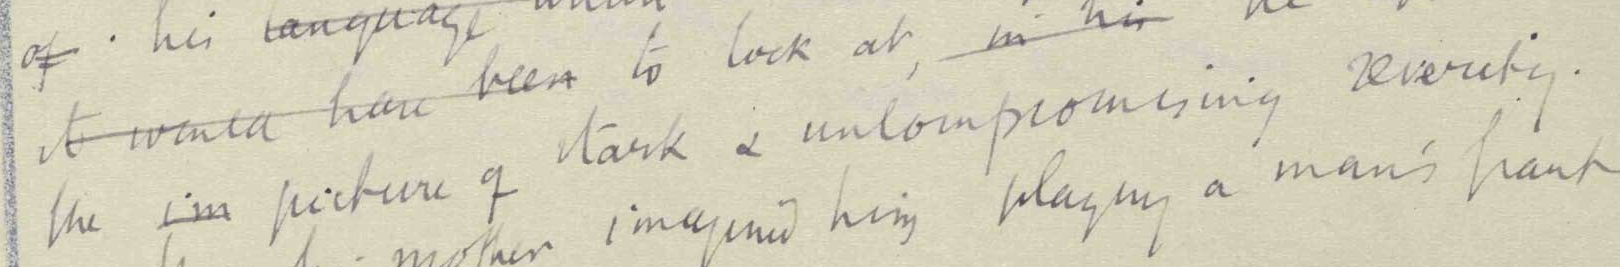 of his language which
it would have been to look at, in his he
the im picture of stark & uncompromising severity.
his mother imagined him playing a man's part